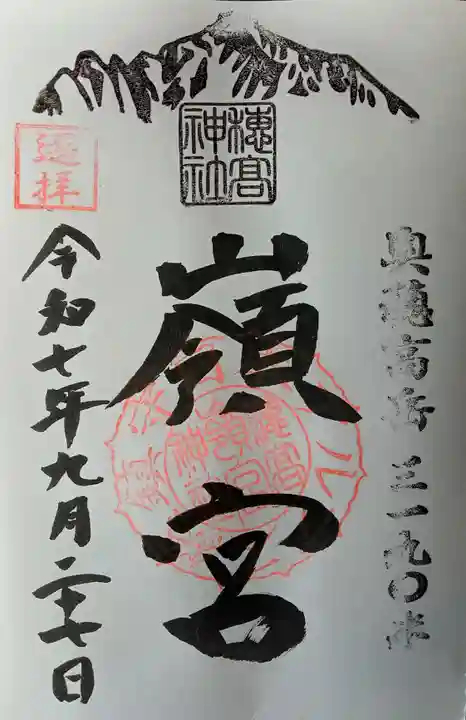 奥穂高岳 三一九〇米
穂高
神社
嶺宮
遥拝
令和七年九月二十七日